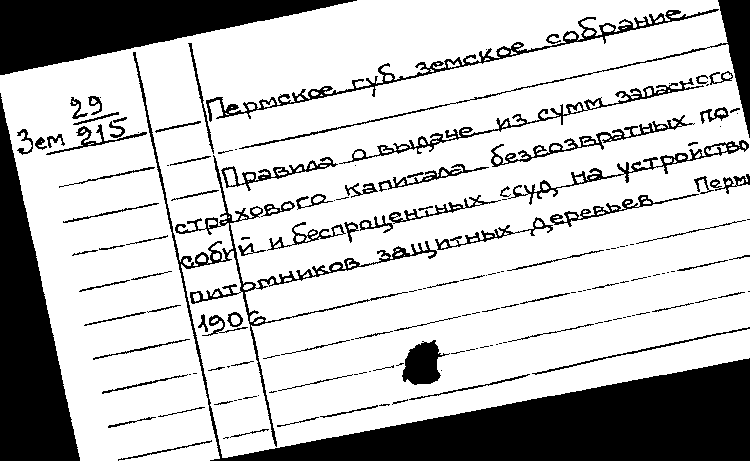 29
Зем 215
Пермское губ. земское собрание
Правила о выдаче из сумм запасного
страхового капитала безвозвратных по-
собий и беспроцентных ссуд на устройство
питомников защитных деревьев Пермь
1906